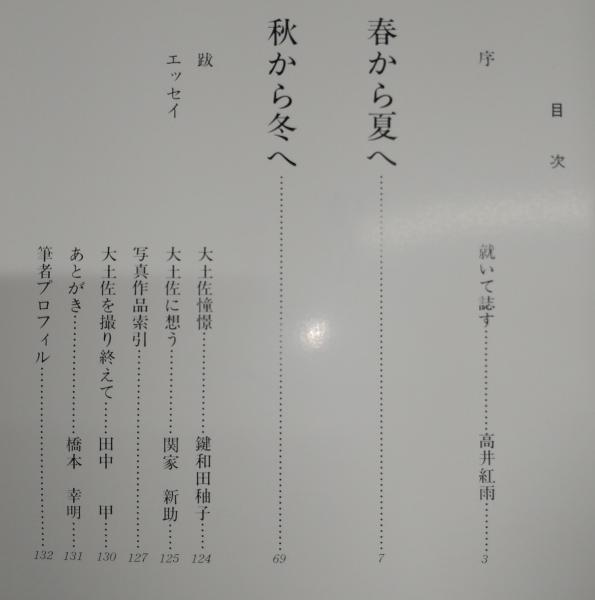 目次
序　就いて誌す……………高井紅雨……3
春から夏へ……………7
秋から冬へ……………69
跋　大土佐憧憬……………鍵和田秞子……124
エッセイ　大土佐に想う……………関家　新助……125
写真作品索引……………127
大土佐を撮り終えて……田中　甲……130
あとがき……………橋本　幸明……131
筆者プロフィル……………132